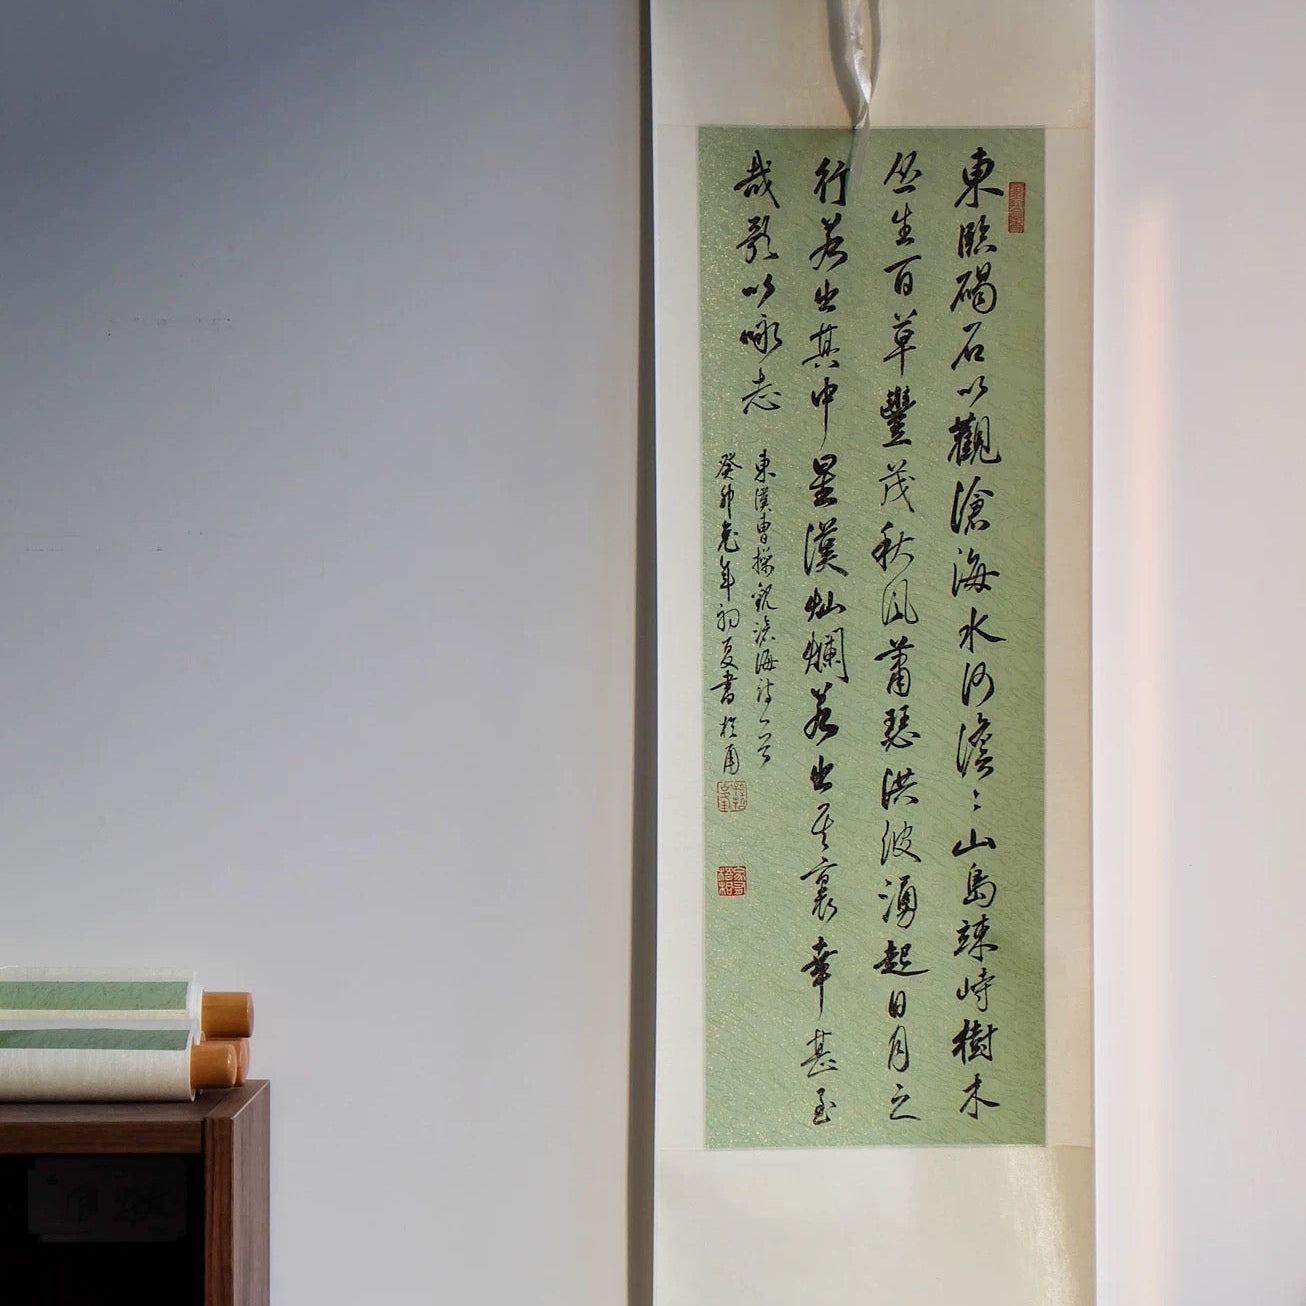 東臨碣石以觀滄海水何澹〻山島竦峙樹木
叢生百草豐茂秋風蕭瑟洪波湧起日月之
行若出其中星漢燦爛若出其裏幸甚至
哉歌以詠志
東漢曹操觀滄海詩一首
癸卯兔年初夏書於甬